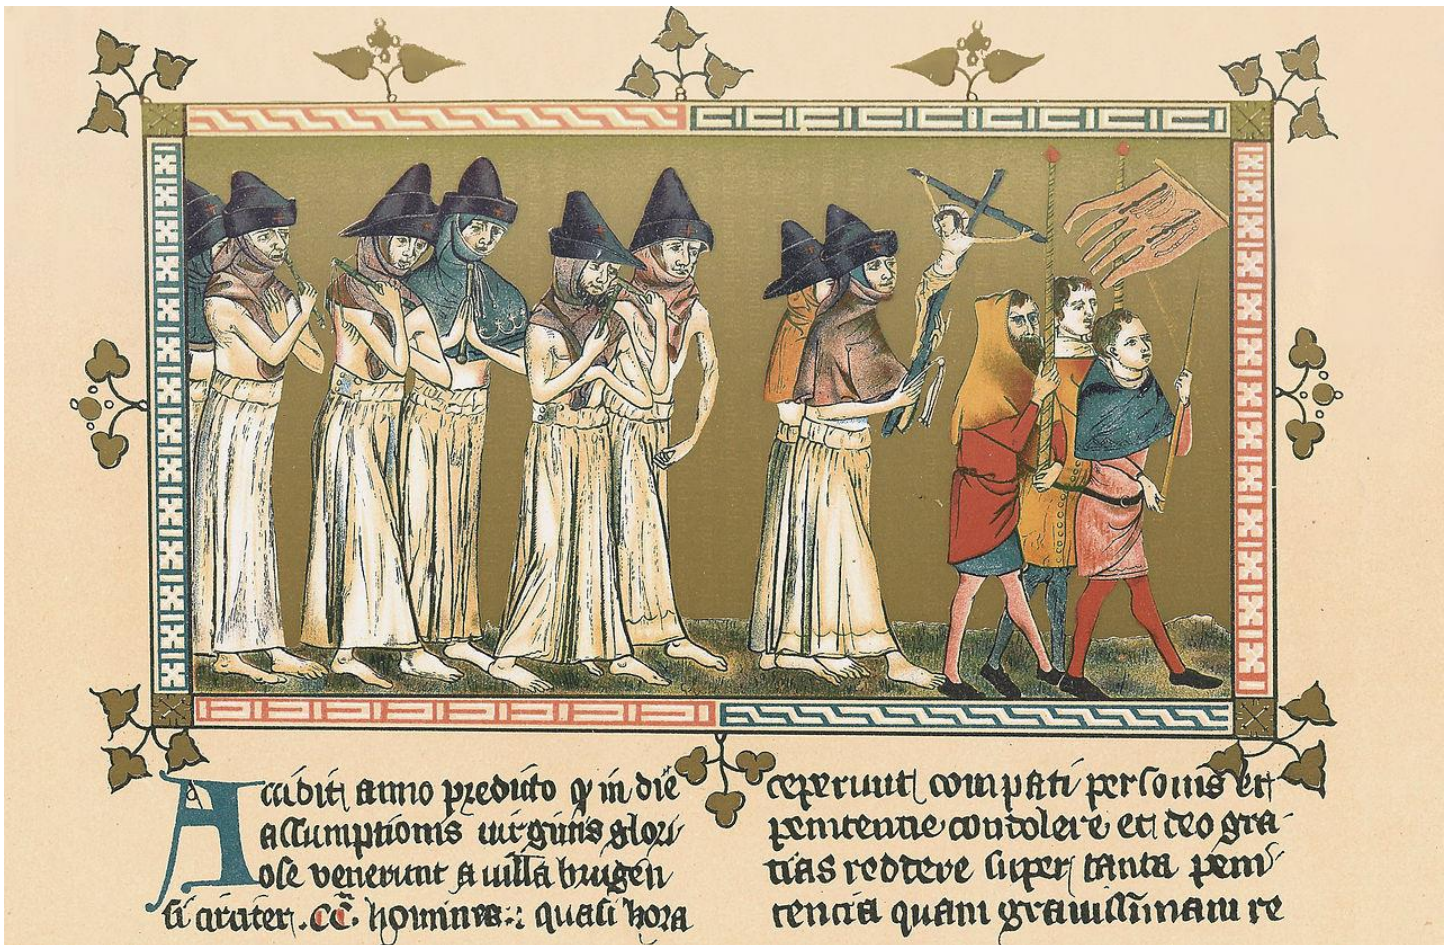 Accidit anno predicto ꝙ in die
assumptionis uirginis glori
ose venerunt a uilla brugen
si circiter .CC. homines: quasi hora
ceperunt compati personis et
penitentie condolere et deo gra-
tias reddere super tanta peni-
tencia quam grauissimam re